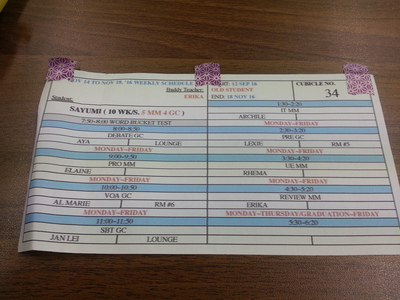 NOV 14 TO NOV 18, '16 WEEKLY SCHEDULE
START: 11 SEP 16
CUBICLE NO.
34
Buddy Teacher:
OLD STUDENT
ERIKA
END: 18 NOV 16
Student:
SAYUMI ( 10 WK/S. 5 MM 4 GC )
7:50~8:00 WORD BUCKET TEST
8:00~8:50
DEBATE GC
AYA LOUNGE
MONDAY~FRIDAY
9:00~9:50
PRO MM
ELAINE
MONDAY~FRIDAY
10:00~10:50
VOA GC
AL MARIE RM #6
MONDAY~FRIDAY
11:00~11:50
SBT GC
JAN LEI LOUNGE
1:30~2:20
IT MM
ARCHILE
MONDAY~FRIDAY
2:30~3:20
PRE GC
LEXIE RM #5
MONDAY~FRIDAY
3:30~4:20
UE MM
RHEMA
MONDAY~FRIDAY
4:30~5:20
REVIEW MM
ERIKA
MONDAY~THURSDAY/GRADUATION~FRIDAY
5:30~6:20